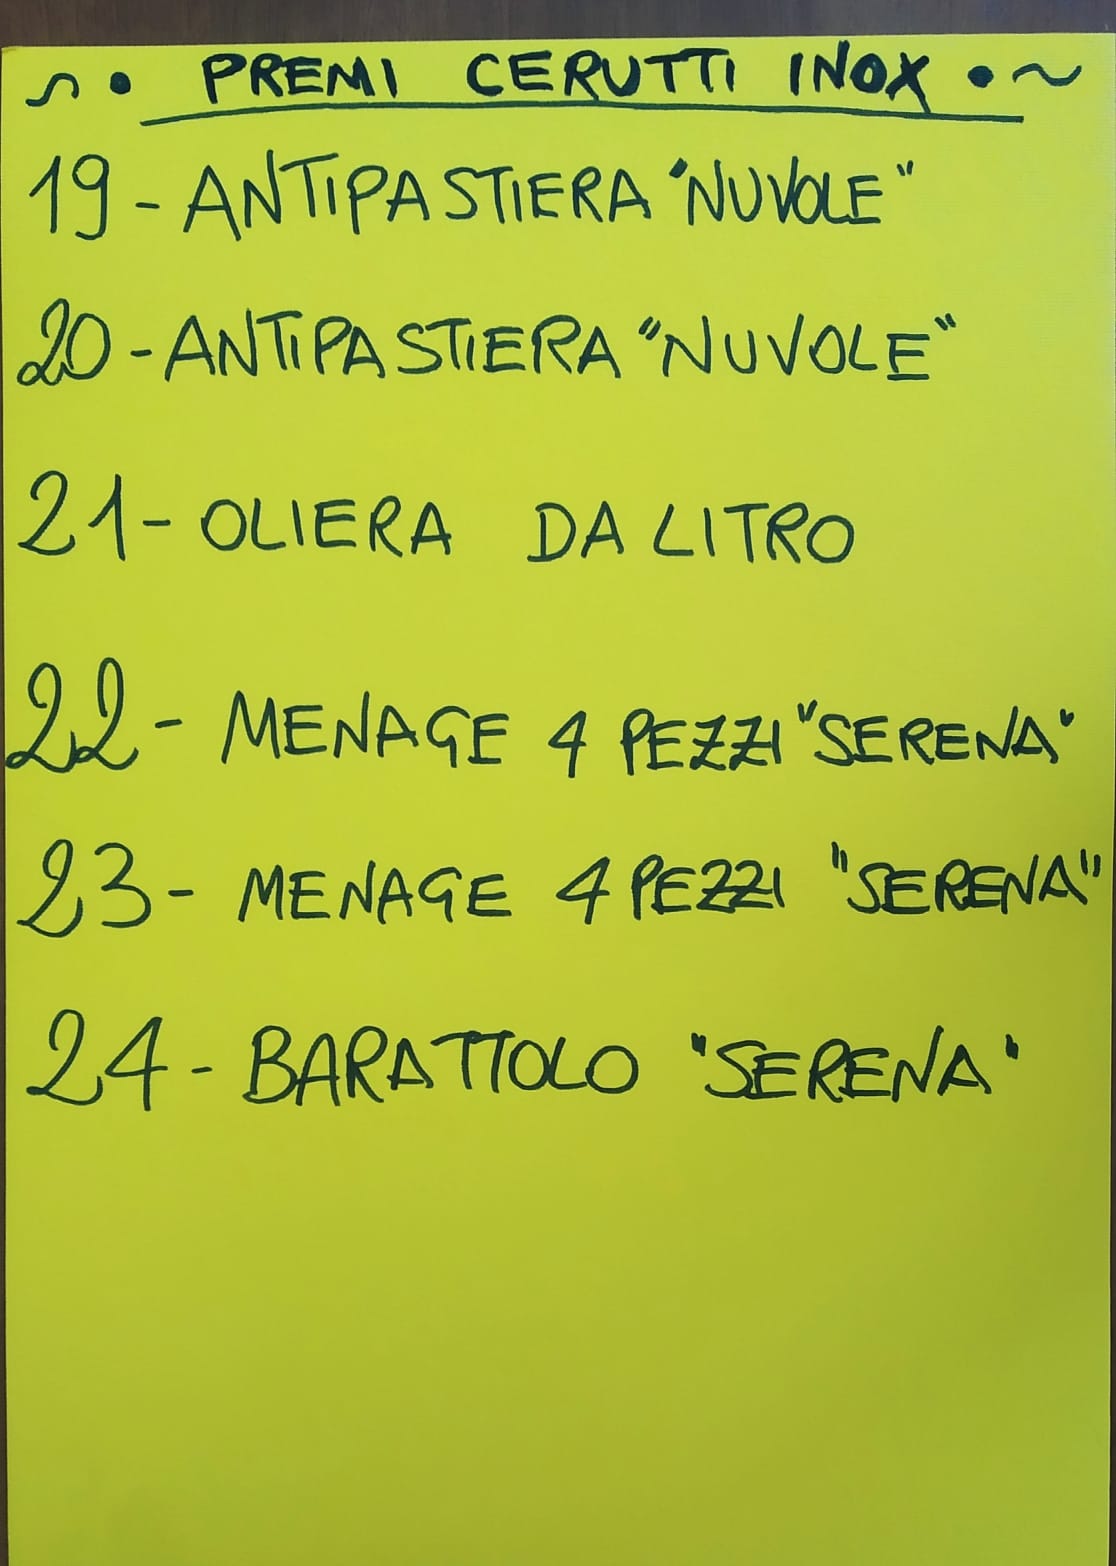 ~ • PREMI CERUTTI INOX • ~
19 - ANTIPASTIERA "NUVOLE"
20 - ANTIPASTIERA "NUVOLE"
21 - OLIERA DA LITRO
22 - MENAGE 4 PEZZI "SERENA"
23 - MENAGE 4 PEZZI "SERENA"
24 - BARATTOLO "SERENA"